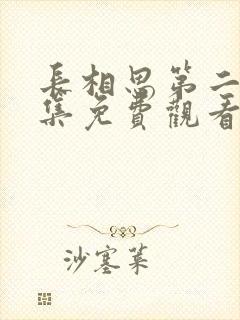 長相思第二
集免費觀看
沙塞菜